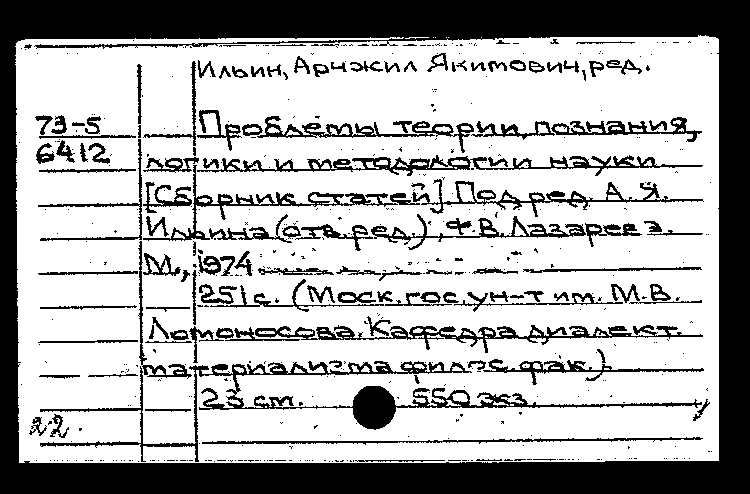 Ильин, Арчжил Якимович, ред.
73-5
6412
Проблемы теории, познания,
логики и методологии науки.
[Сборник статей]. Под ред. А. Я.
Ильина (отв. ред.), Ф.В. Лазарева.
М., 1974
251 с. (Моск. гос. ун-т им. М.В.
Ломоносова. Кафедра диалект.
материализма филос. фак.).
23 ст. 550 экз.
22.